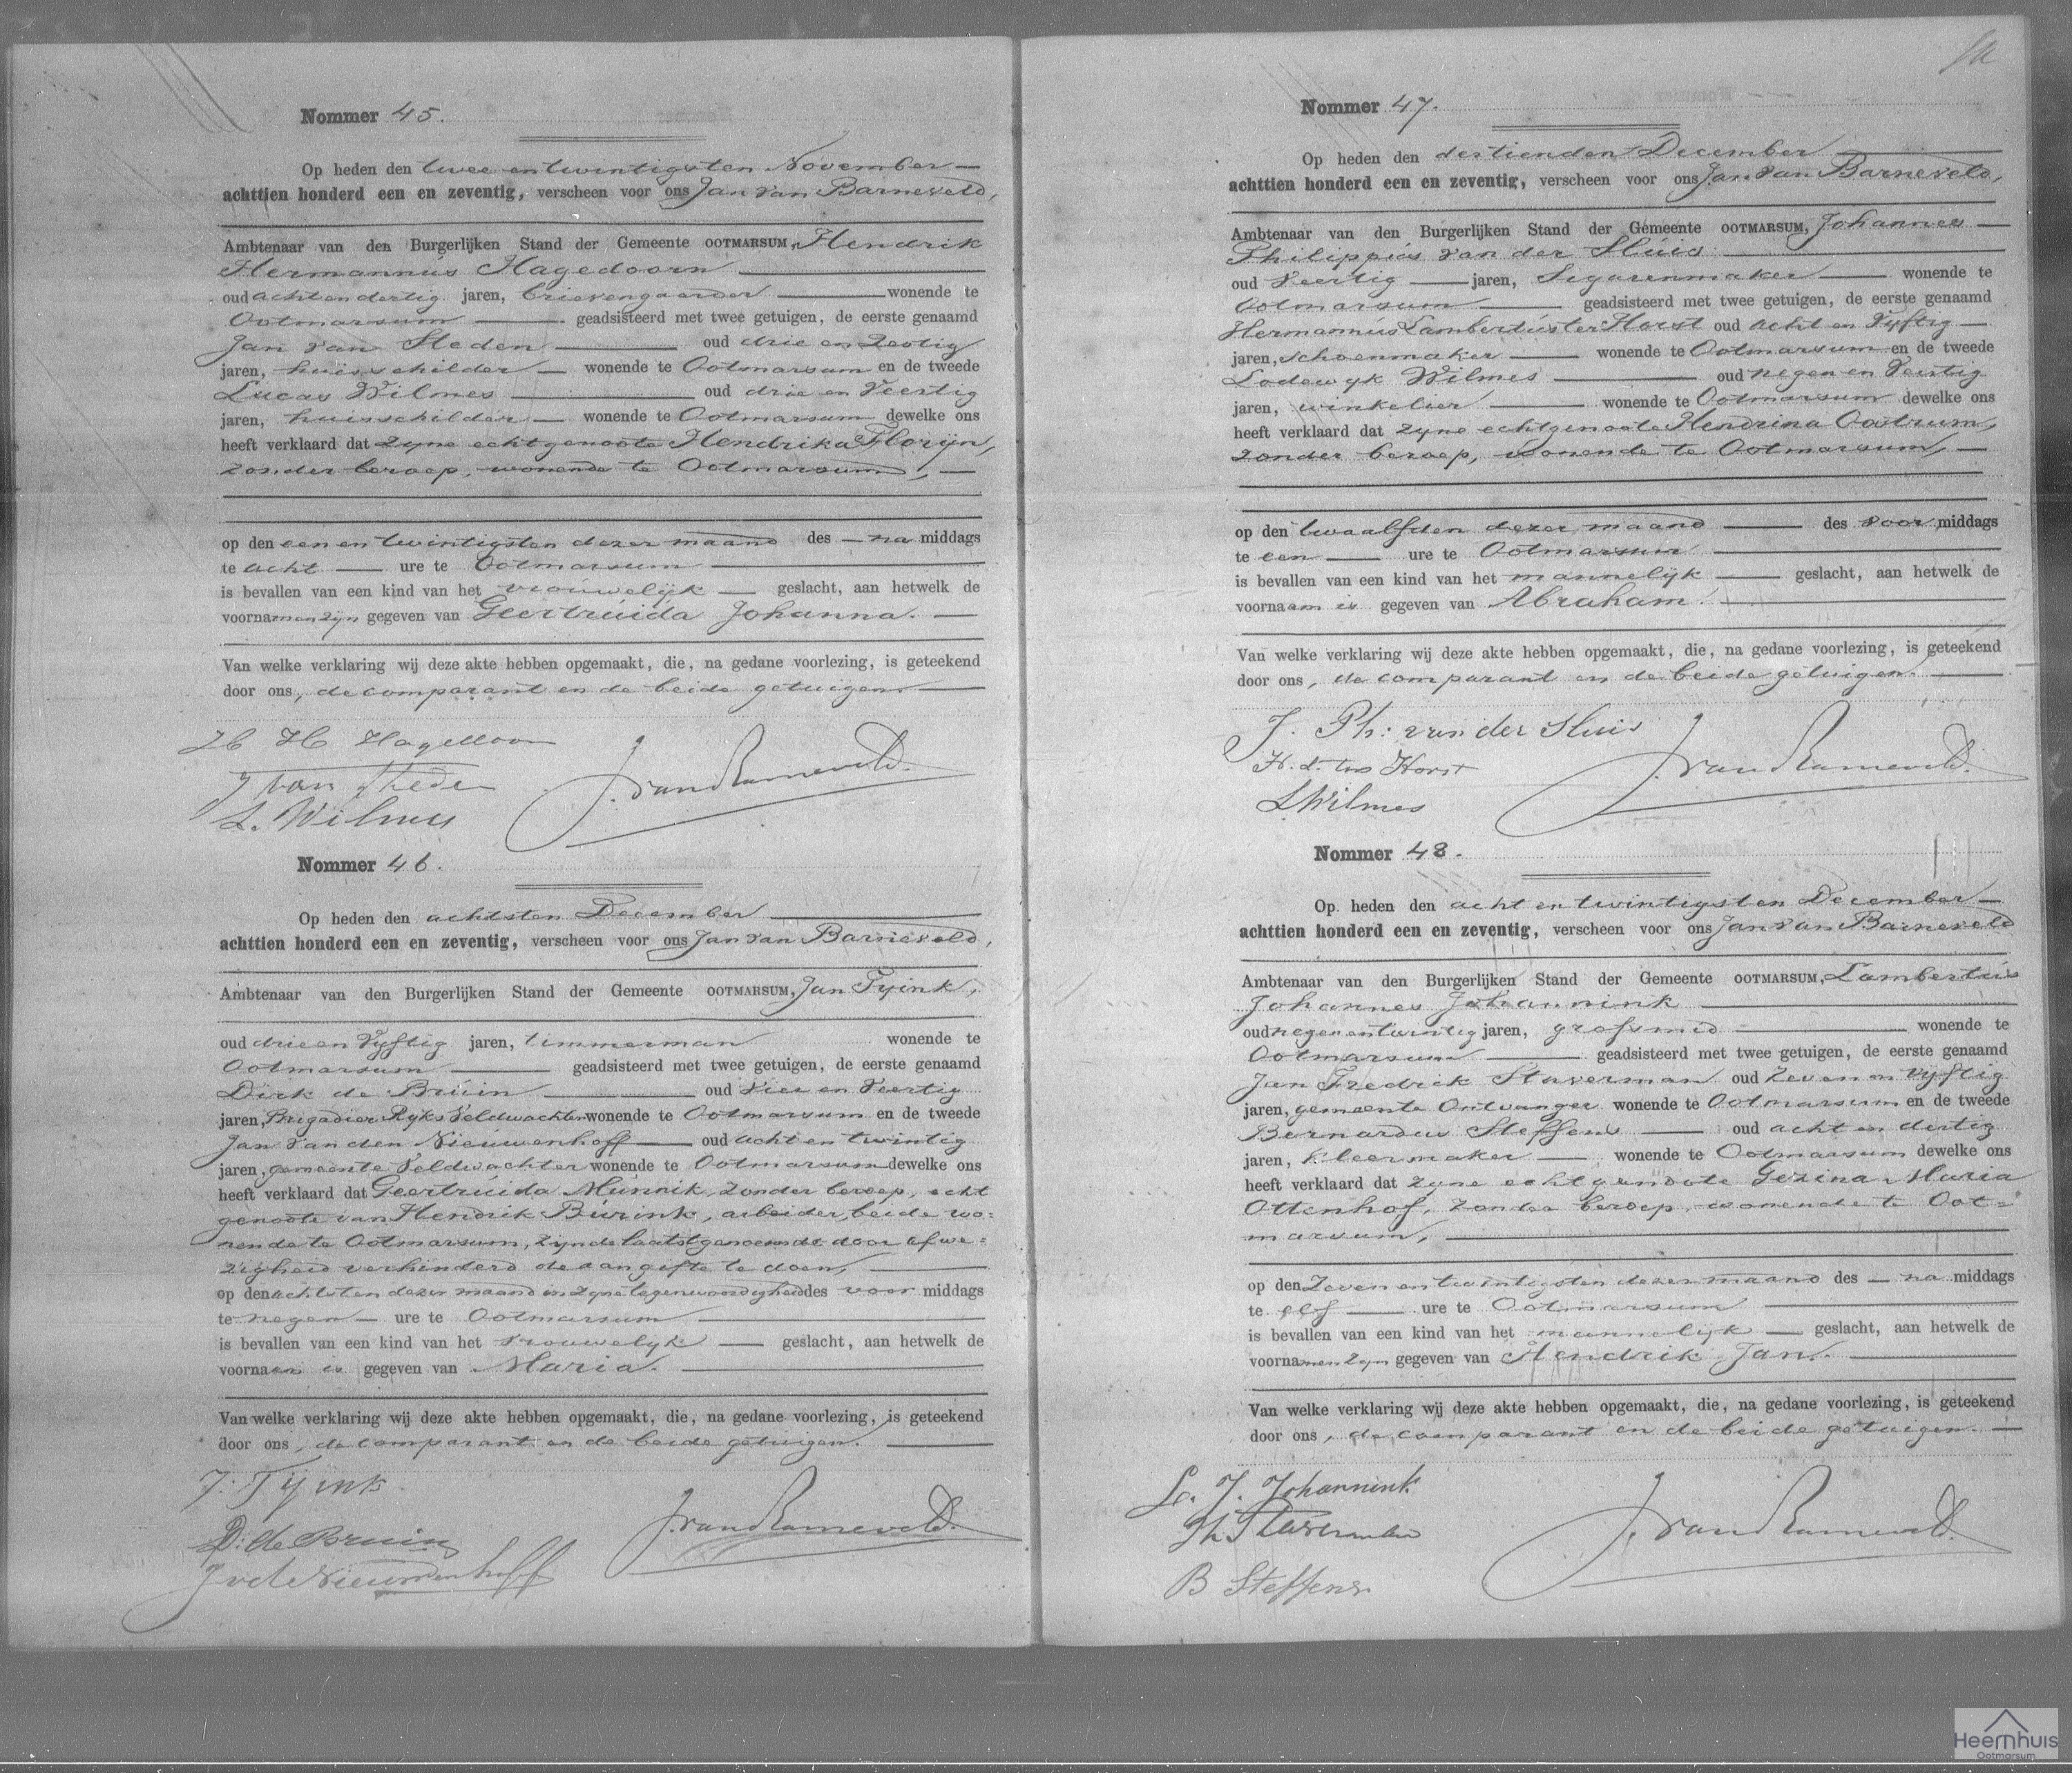 Nommer 45.
Op heden den twee en twintigsten November
achttien honderd een en zeventig, verscheen voor ons Jan van Barneveld,
Ambtenaar van den Burgerlijken Stand der Gemeente OOTMARSUM, Hendrik
Hermannus Hagedoorn
oud acht en dertig jaren, brievengaarder wonende te
Ootmarsum geadsisteerd met twee getuigen, de eerste genaamd
Jan van Sleden oud drie en Zestig
jaren, huisschilder wonende te Ootmarsum en de tweede
Lucas Wilmes oud drie en Veertig
jaren, huisschilder wonende te Ootmarsum dewelke ons
heeft verklaard dat zyne echtgenoote Hendrika Floryn,
zonder beroep, wonende te Ootmarsum,
op den een en twintigsten dezer maand des na middags
te acht ure te Ootmarsum
is bevallen van een kind van het vrouwelijk geslacht, aan hetwelk de
voornamen zyn gegeven van Geertruida Johanna.
Van welke verklaring wij deze akte hebben opgemaakt, die, na gedane voorlezing, is geteekend
door ons, de comparant en de beide getuigen.
H H Hagedoorn
J van Sleden
L. Wilmes
J. van Barneveld.
Nommer 46.
Op heden den achtsten December
achttien honderd een en zeventig, verscheen voor ons Jan van Barneveld,
Ambtenaar van den Burgerlijken Stand der Gemeente OOTMARSUM, Jan Tyink,
oud drie en Vyftig jaren, timmerman wonende te
Ootmarsum geadsisteerd met twee getuigen, de eerste genaamd
Dirk de Bruin oud Vier en Veertig
jaren, Brigadier Ryks Veldwachter wonende te Ootmarsum en de tweede
Jan van den Nieuwenhoff oud acht en twintig
jaren, gemeente Veldwachter wonende te Ootmarsum dewelke ons
heeft verklaard dat Geertruida Munnik, zonder beroep, echt
genoote van Hendrik Burink, arbeider, beide wo=
nende te Ootmarsum, zynde laatstgenoemde door afwe=
zigheid verhinderd de aangifte te doen,
op den achtsten dezer maand in zyne tegenwoordigheid des voor middags
te negen ure te Ootmarsum
is bevallen van een kind van het vrouwelyk geslacht, aan hetwelk de
voornaam is gegeven van Maria.
Van welke verklaring wij deze akte hebben opgemaakt, die, na gedane voorlezing, is geteekend
door ons, de comparant en de beide getuigen.
J. Tyink
D: de Bruin
J v d Nieuwenhoff
J. van Barneveld.
Nommer 47.
Op heden den dertienden December
achttien honderd een en zeventig, verscheen voor ons Jan van Barneveld,
Ambtenaar van den Burgerlijken Stand der Gemeente OOTMARSUM, Johannes
Philippus van der Sluis
oud Veertig jaren, Segarenmaker wonende te
Ootmarsum geadsisteerd met twee getuigen, de eerste genaamd
Hermannus Lambertus ter Horst oud acht en Vyftig
jaren, schoenmaker wonende te Ootmarsum en de tweede
Lodewyk Wilmes oud negen en Veertig
jaren, winkelier wonende te Ootmarsum dewelke ons
heeft verklaard dat zyne echtgenoote Hendrina Oostrum,
zonder beroep, wonende te Ootmarsum,
op den twaalfden dezer maand des voor middags
te een ure te Ootmarsum
is bevallen van een kind van het mannelijk geslacht, aan hetwelk de
voornaam is gegeven van Abraham.
Van welke verklaring wij deze akte hebben opgemaakt, die, na gedane voorlezing, is geteekend
door ons, de comparant en de beide getuigen.
J. Ph: van der Sluis
H. L. ter Horst
L Wilmes
J. van Barneveld.
Nommer 48.
Op heden den acht en twintigsten December
achttien honderd een en zeventig, verscheen voor ons Jan van Barneveld
Ambtenaar van den Burgerlijken Stand der Gemeente OOTMARSUM, Lambertus
Johannes Johannink
oud negen en twintig jaren, grofsmid wonende te
Ootmarsum geadsisteerd met twee getuigen, de eerste genaamd
Jan Fredrik Staverman oud Zeven en Vyftig
jaren, gemeente Ontvanger wonende te Ootmarsum en de tweede
Bernardus Steffens oud acht en dertig
jaren, Kleermaker wonende te Ootmarsum dewelke ons
heeft verklaard dat zyne echtgenoote Gezina Maria
Ottenhof, zonder beroep, wonende te Oot=
marsum,
op den Zeven en twintigsten dezer maand des na middags
te elf ure te Ootmarsum
is bevallen van een kind van het mannelijk geslacht, aan hetwelk de
voornamen zyn gegeven van Hendrik Jan.
Van welke verklaring wij deze akte hebben opgemaakt, die, na gedane voorlezing, is geteekend
door ons, de comparant en de beide getuigen.
L. J. Johannink
Staverman
B Steffens
J. van Barneveld.
Heemhuis
Ootmarsum